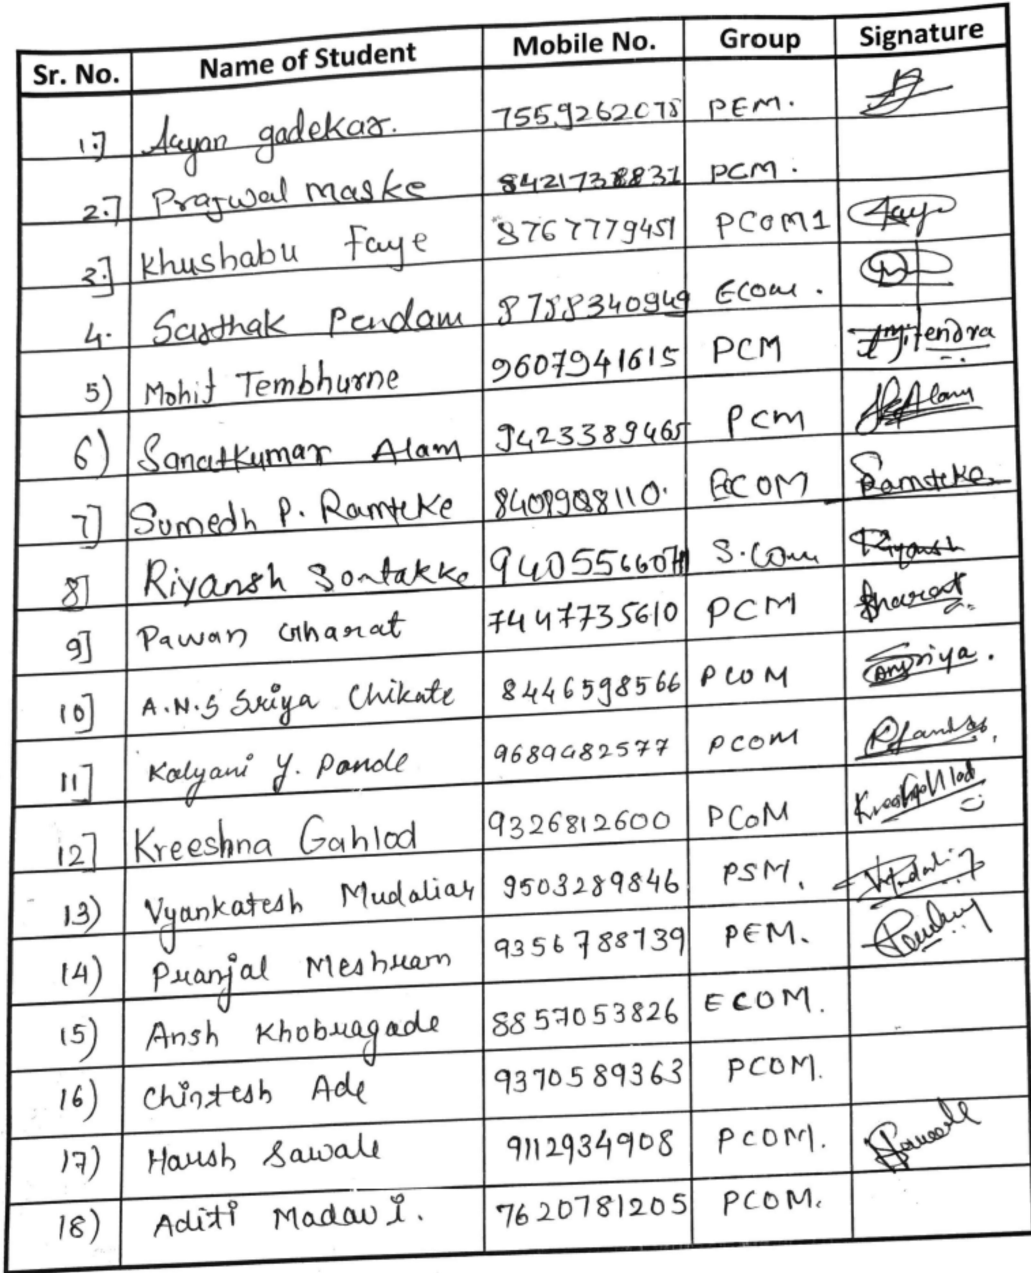 Sr. No. Name of Student Mobile No. Group Signature
1.] Aayan gadekar. 7559262078 PEM.
2.] Prajwal maske 8421738831 PCM.
3.] Khushabu Faye 8767779451 PCOM1 Faye
4. Sarthak Pendam 8788340949 Ecom.
5) Mohit Tembhurne 9607941615 PCM Jitendra
6) Sanatkumar Alam 9423389465 PCM Alam
7] Sumedh P. Ramteke 8408908110. ECOM Ramteke
8] Riyansh Sontakke S.Com Riyansh
9] Pawan Gharat 7447735610 PCM Bharat
10] A.N.S Sriya Chikate 8446598566 PCOM
11] Kalyani Y. Pande 9689482577 PCOM
12] Kreeshna Gahlod 9326812600 PCoM
13) Vyankatesh Mudaliar 9503289846 PSM.
14) Pranjal Meshram 9356788739 PEM.
15) Ansh Khobragade 8857053826 ECOM.
16) Chintesh Ade 9370589363 PCOM.
17) Harsh Sawale 9112934908 PCOM.
18) Aditi Madavi. 7620781205 PCOM.